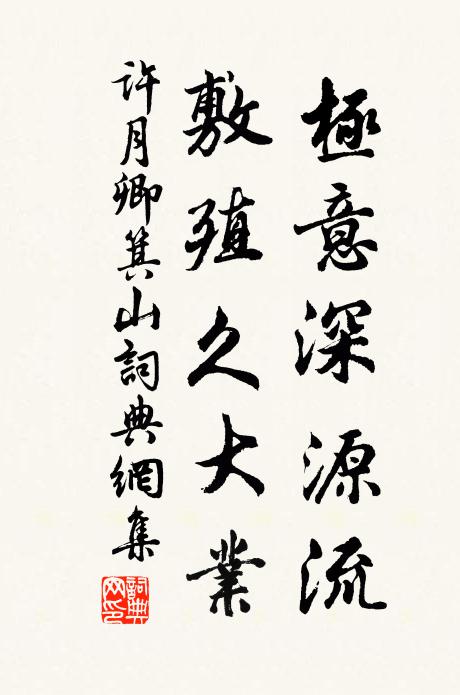 極意深源流
敷殖久大業
許月卿箕山詞典網集
詞典網印